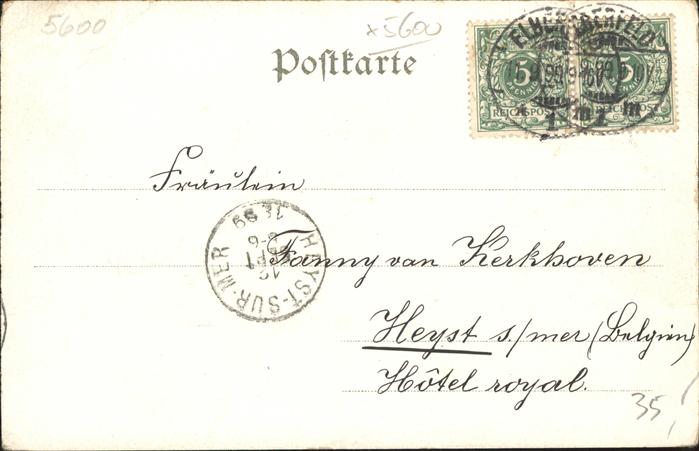 5600
x5600
Postkarte
5 PFENNIG REICHSPOST
5 REICHSPOST
ELBERFELD
1 m
1 m
Fräulein
Fanny van Kerkhoven
Heyst s./mer (Belgien)
Hôtel royal.
HEYST-SUR-MER
12 SEPT
99
35,